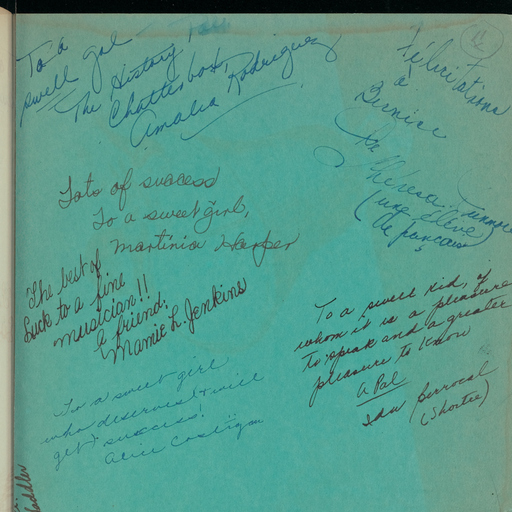 To a
swell gal
The History
Chatterbox,
Amalia Rodriguez
Félicitations
à
Bernice
De
Theresa
(une élève)
(de français)
Lots of success
To a sweet girl,
Martinia Harper
The best of
Luck to a fine
musician!!
A friend,
Mamie L. Jenkins
To a swell kid, of
whom it is a pleasure
to speak and a greater
pleasure to know
A Pal
Ida Berrocal
(Shortie)
To a sweet girl
who deserves & will
get success!
Alice